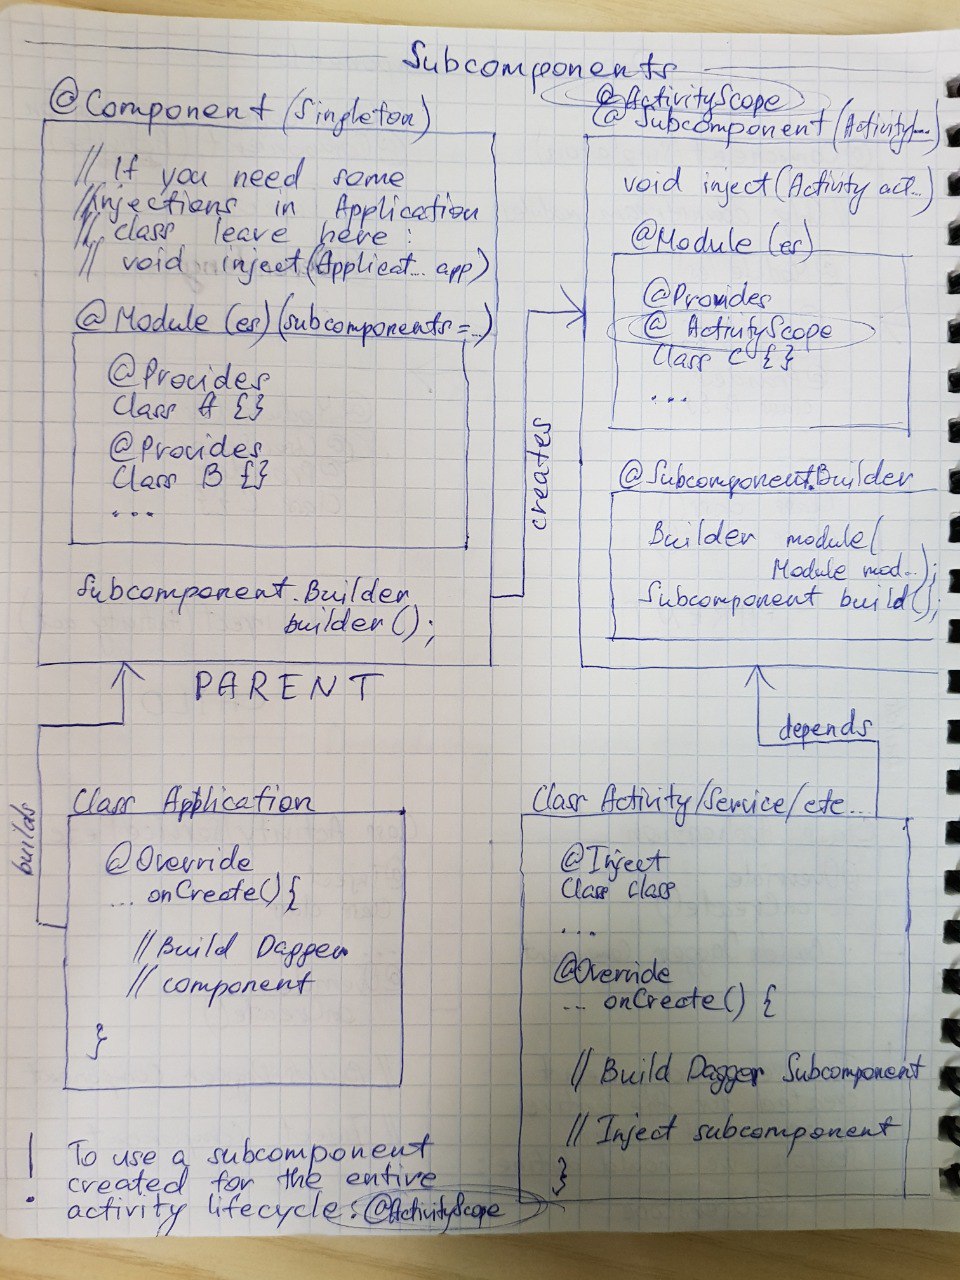 Subcomponents
@Component (Singleton)
// If you need some
// injections in Application
// class leave here :
// void inject(Applicat... app)
@Module (es) (subcomponents=...)
@Provides
Class A {}
@Provides
Class B {}
...
Subcomponent.Builder
builder();
PARENT
creates
@ActivityScope
@Subcomponent (Activity...)
void inject(Activity act...)
@Module (es)
@Provides
@ActivityScope
Class C {}
...
@Subcomponent.Builder
Builder module(
Module mod...);
Subcomponent build();
depends
builds
Class Application
@Override
... onCreate() {
// Build Dagger
// component
}
Class Activity/Service/etc...
@Inject
Class class
...
@Override
... onCreate() {
// Build Dagger Subcomponent
// Inject subcomponent
}
! To use a subcomponent
created for the entire
activity lifecycle: @ActivityScope